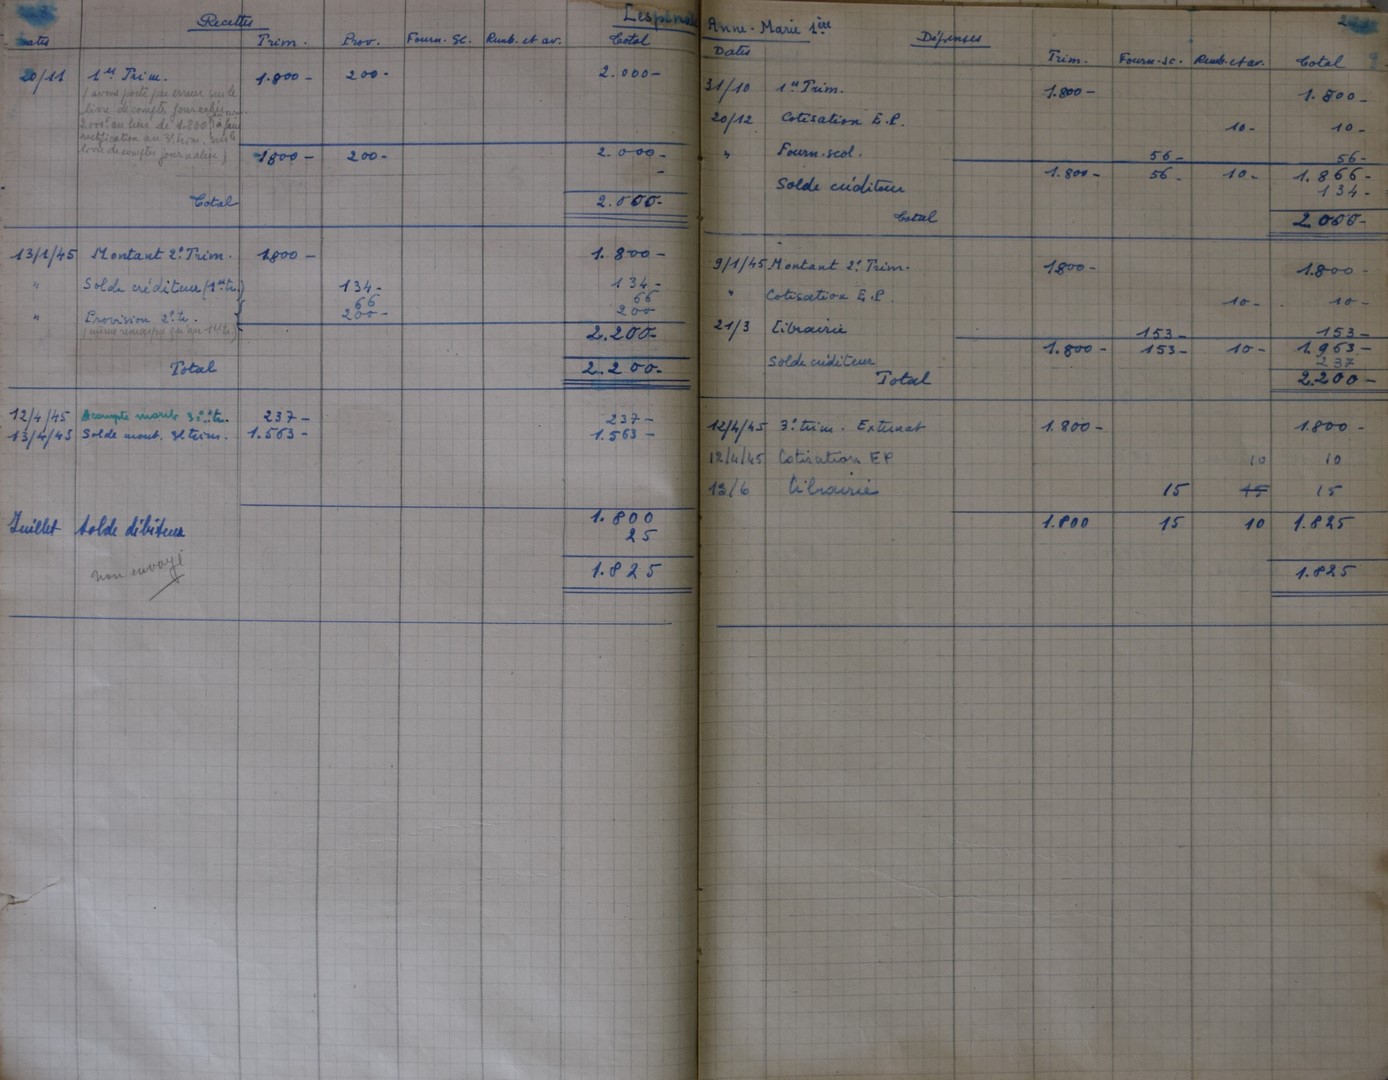 Recettes
Dates Trim. Prov. Fourn. Sc. Remb. et av. Total
20/11 1er Trim. 1.800- 200- 2.000-
(avons porté par erreur sur le
livre de compte journalier
2.000 au lieu de 1.800 à faire
rectification au 3e trim. sur le
livre de comptes journalier)
1800- 200- 2.000-
-
Total 2.000-
13/1/45 Montant 2e Trim. 1.800- 1.800-
" Solde créditeur (1er tr.) 134- 134-
66 66
" Provision 2e tr. 200- 200
(même remarque qu'au 1er tr.)
2.200-
Total 2.200-
12/4/45 Acompte mont 3e tr. 237- 237-
13/4/45 Solde mont. 3e trim. 1.563- 1.563-
1.800
Juillet Solde débiteur 25
non envoyé
1.825
Anne-Marie 1ère
Dépenses
Dates Trim. Fourn. sc. Remb. et av. Total
31/10 1er Trim. 1.800- 1.800-
20/12 Cotisation E.P. 10- 10-
" Fourn. scol. 56- 56-
1.800- 56- 10- 1.866-
Solde créditeur 134-
Total 2000-
9/1/45 Montant 2e Trim. 1800- 1.800-
" Cotisation E.P. 10- 10-
21/3 Librairie 153- 153-
1.800- 153- 10- 1.963-
Solde créditeur 237
Total 2.200-
12/4/45 3e trim. Externat 1.800- 1.800-
12/4/45 Cotisation EP 10 10
13/6 Librairie 15 15 15
1.800 15 10 1.825
1.825